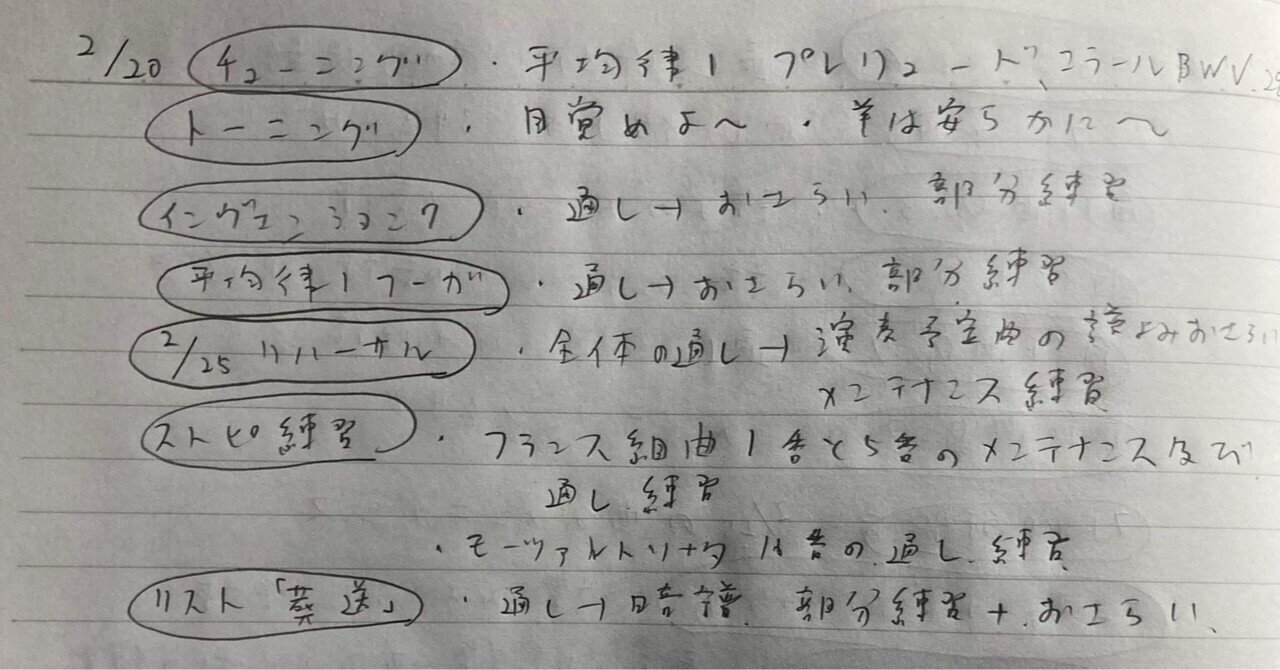 2/20 チューニング ・平均律1 プレリュード、コラールBWV.
トーニング ・目覚めよ〜 ・羊は安らかに〜
インヴェンション7 ・通し→おさらい、部分練習
平均律1フーガ ・通し→おさらい、部分練習
2/25 リハーサル ・全体の通し→演奏予定曲の譜よみおさらい
メンテナンス練習
ストピ練習 ・フランス組曲1番と5番のメンテナンス及び
通し練習
・モーツァルトソナタ 番の通し練習
リスト「葬送」 ・通し→暗譜、部分練習+おさらい、